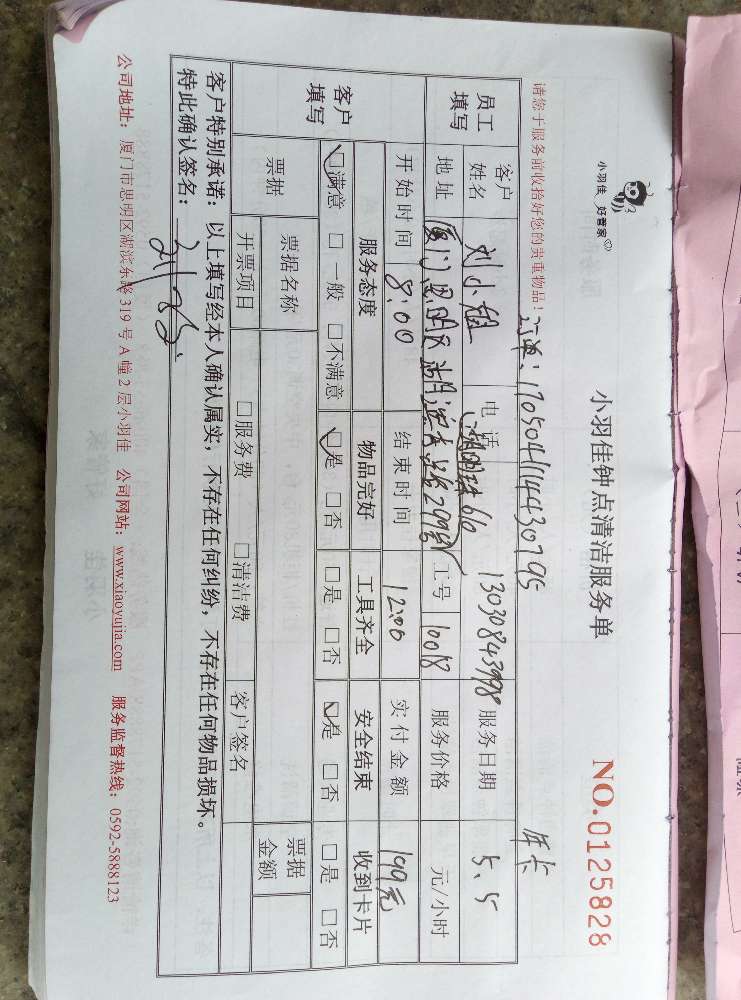 小羽佳 好管家
小羽佳钟点清洁服务单
NO.0125828
请您于服务前收拾好您的贵重物品!
年卡
员工填写 客户姓名 刘小姐 电话 13030843998 服务日期 5.5
地址 厦门思明区湖滨东路299号 工号 10018 服务价格 元/小时
开始时间 8:00 结束时间 12:00 实付金额 199元
客户填写 服务态度 物品完好 工具齐全 安全结束 收到卡片
☑满意 □一般 □不满意 ☑是 □否 □是 □否 ☑是 □否 □是 □否
票据 票据名称 票据金额
开票项目 □服务费 □清洁费 客户签名
客户特别承诺:以上填写经本人确认属实,不存在任何纠纷,不存在任何物品损坏。
特此确认签名:
公司地址:厦门市思明区湖滨东路319号A幢2层小羽佳 公司网站:www.xiaoyujia.com 服务监督热线:0592-5888123